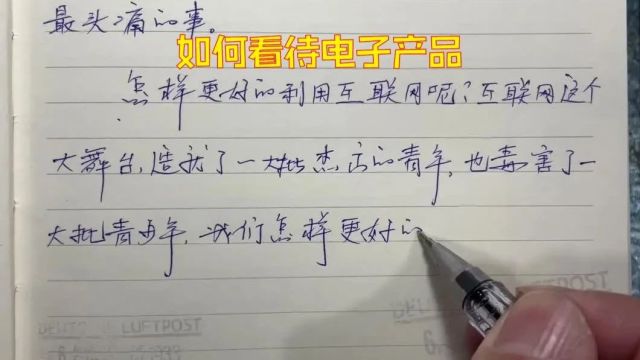 最头痛的事。
如何看待电子产品
怎样更好的利用互联网呢?互联网这个
大舞台,造就了一大批杰出的青年,也毒害了一
大批青少年,我们怎样更好的
LUFTPOST